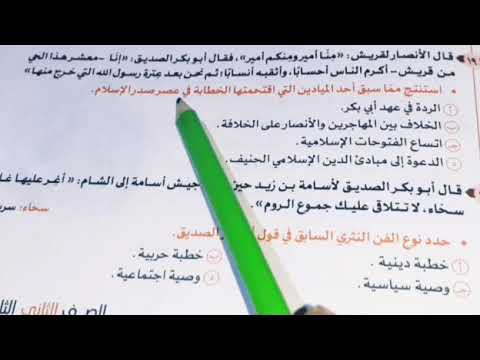 قال الأنصار لقريش: «مِنَّا أمير ومنكم أمير»، فقال أبو بكر الصديق: «إنَّا -معشر هذا الحي
من قريش- أكرم الناس أحسابًا، وأثقبه أنسابًا؛ ثم نحن بعد عِترة رسول الله التي خرج منها»
• استنتج مما سبق أحد الميادين التي اقتحمتها الخطابة في عصر صدر الإسلام.
أ الردة في عهد أبي بكر.
ب الخلاف بين المهاجرين والأنصار على الخلافة.
ج اتساع الفتوحات الإسلامية.
د الدعوة إلى مبادئ الدين الإسلامي الحنيف.
قال أبو بكر الصديق لأسامة بن زيد حين جيش أسامة إلى الشام: «أغر عليها
سحاء، لا تتلاقى عليك جموع الروم».
سحاء:
• حدد نوع الفن النثري السابق في قول الصديق.
أ خطبة دينية.
ب خطبة حربية.
ج وصية سياسية.
د وصية اجتماعية.
الصف الثاني